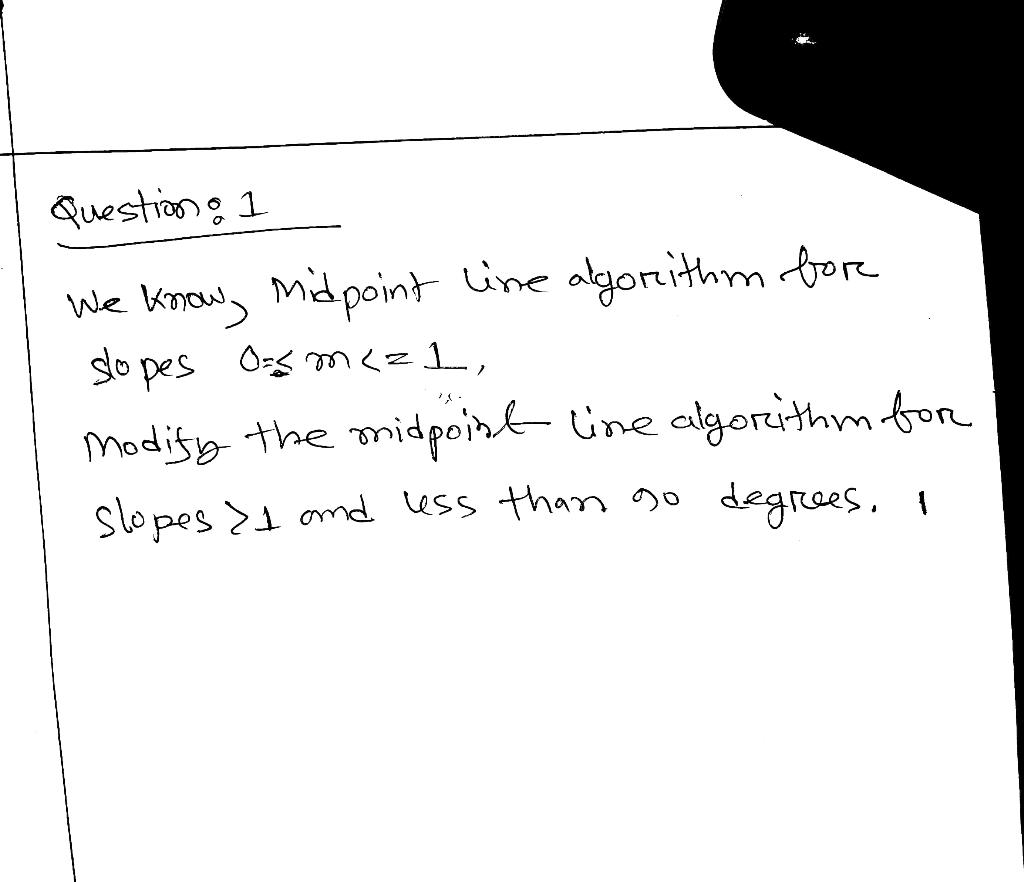 Question: 1
We know, Midpoint line algorithm for
slopes 0=≤ m <= 1,
Modify the midpoint line algorithm for
slopes >1 and less than 90 degrees. 1